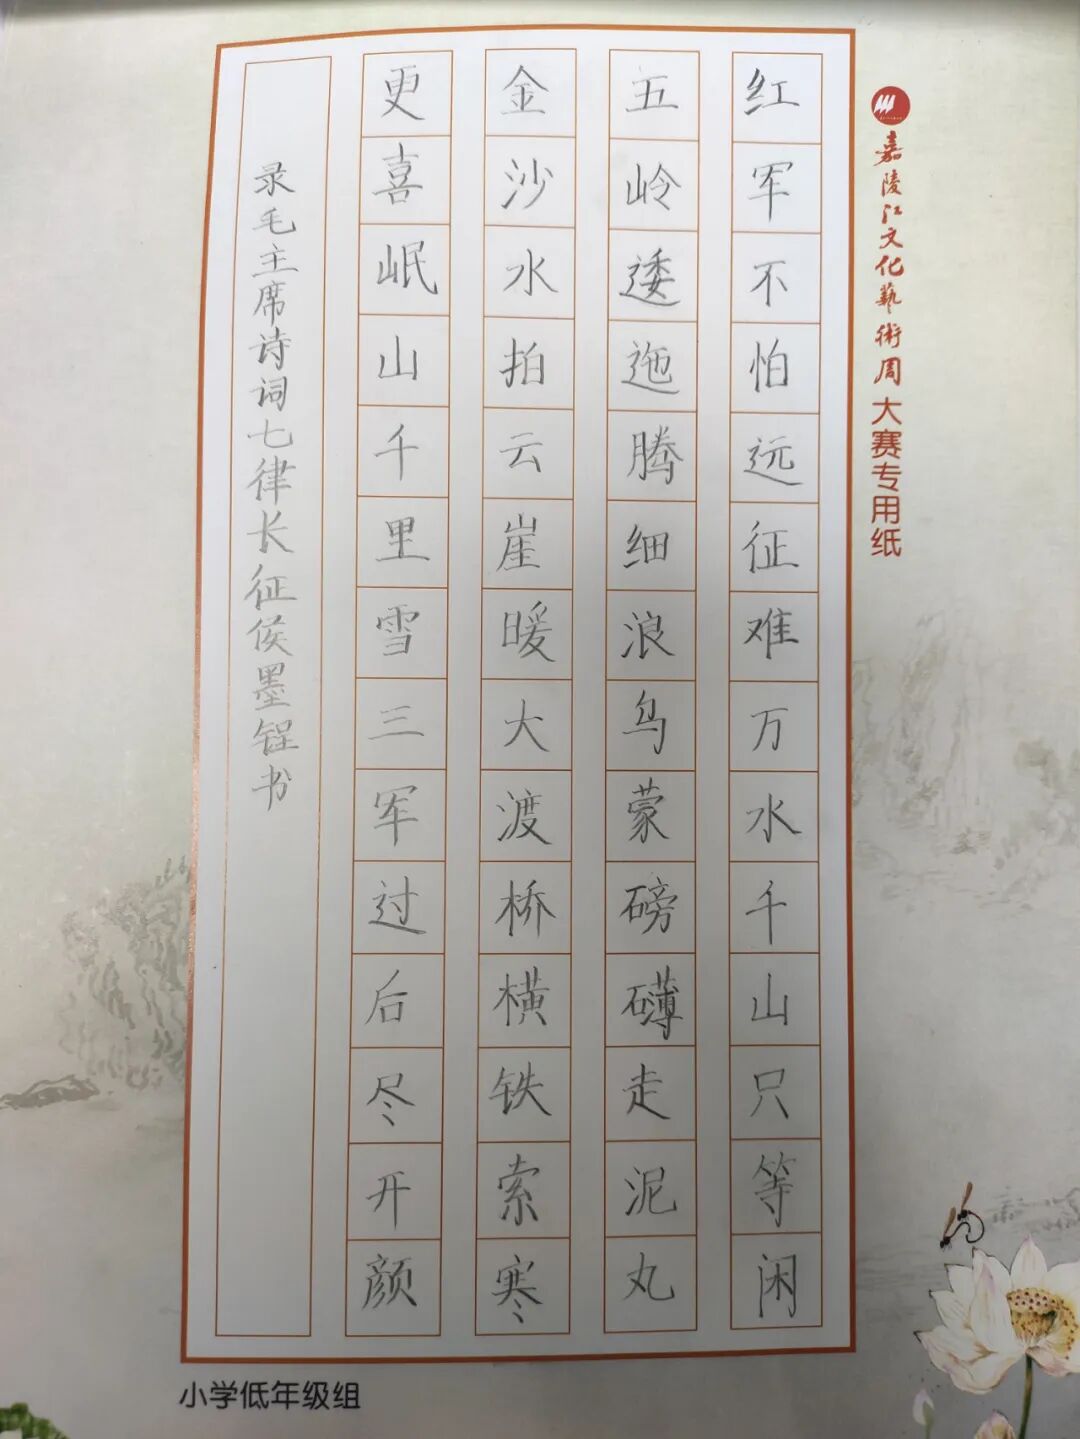 嘉陵江文化藝術周大赛专用纸
红军不怕远征难万水千山只等闲
五岭逶迤腾细浪乌蒙磅礴走泥丸
金沙水拍云崖暖大渡桥横铁索寒
更喜岷山千里雪三军过后尽开颜
录毛主席诗词七律长征侯墨锃书
小学低年级组